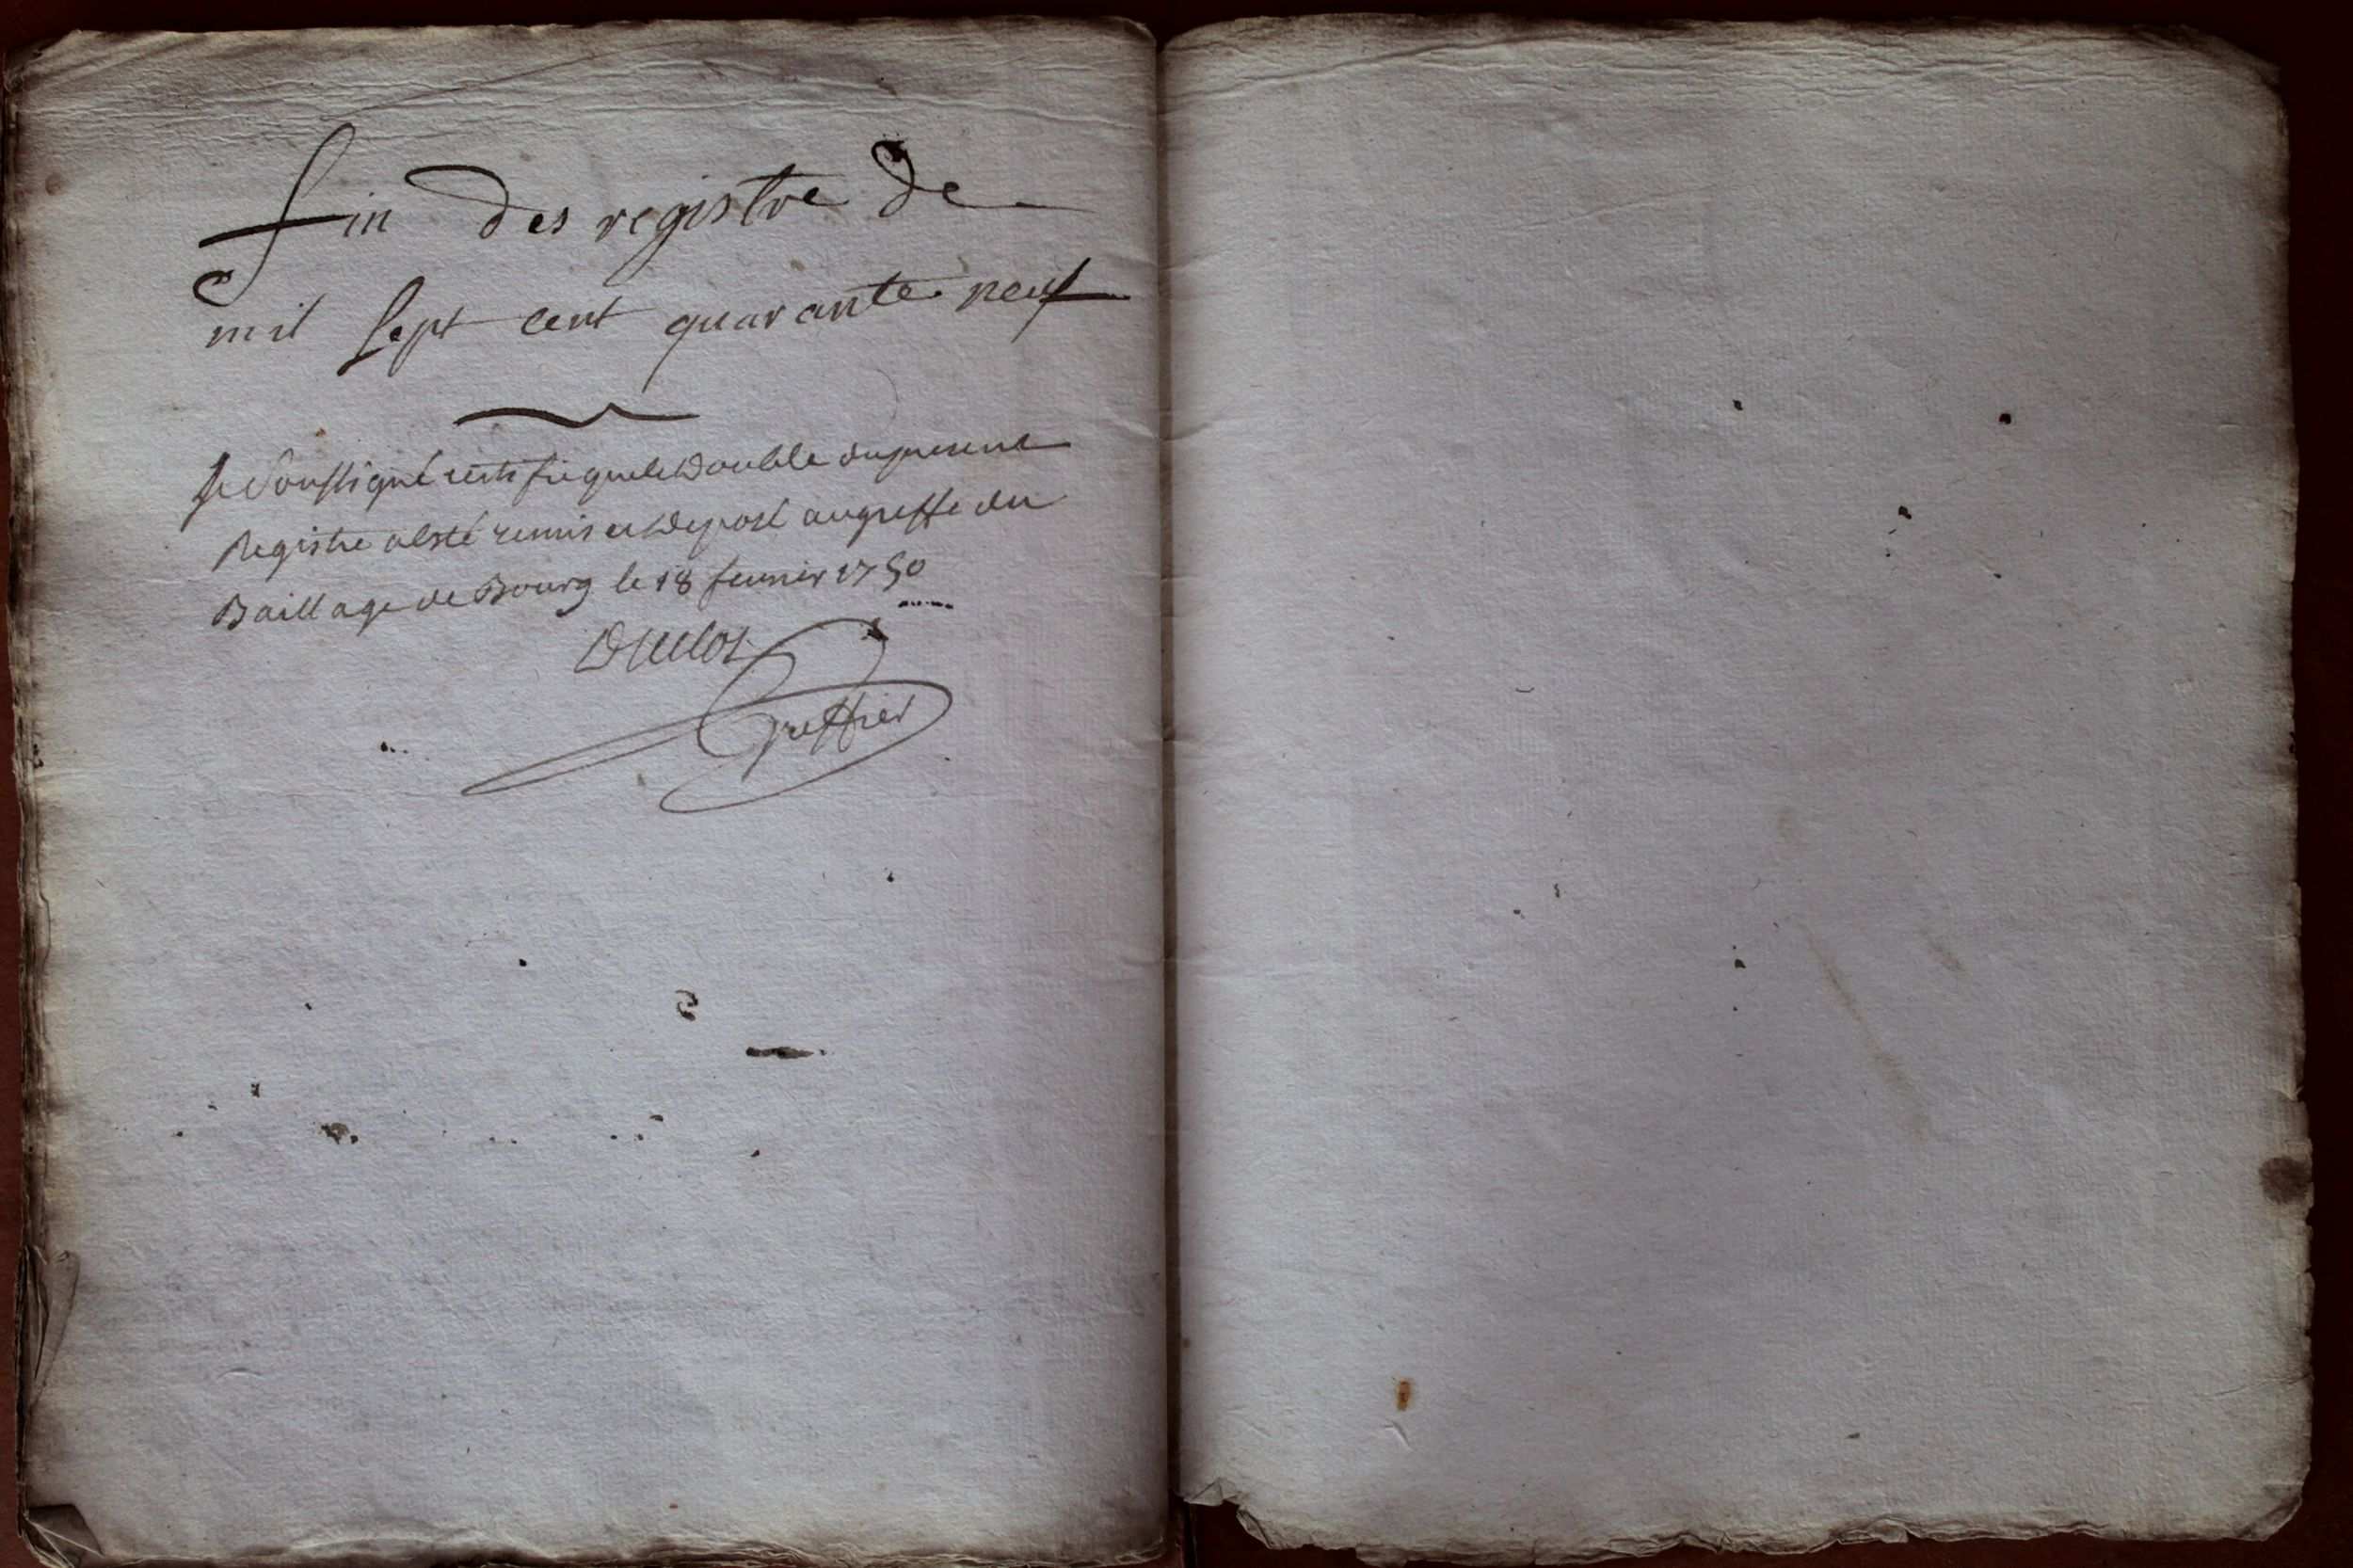 fin des registre de
mil sept cent quarante neuf
Je soussigné certifie que le Double du present
Registre a esté remis et deposé au greffe du
Baillage de Bourg le 18 fevrier 1750
Duclos
Greffier